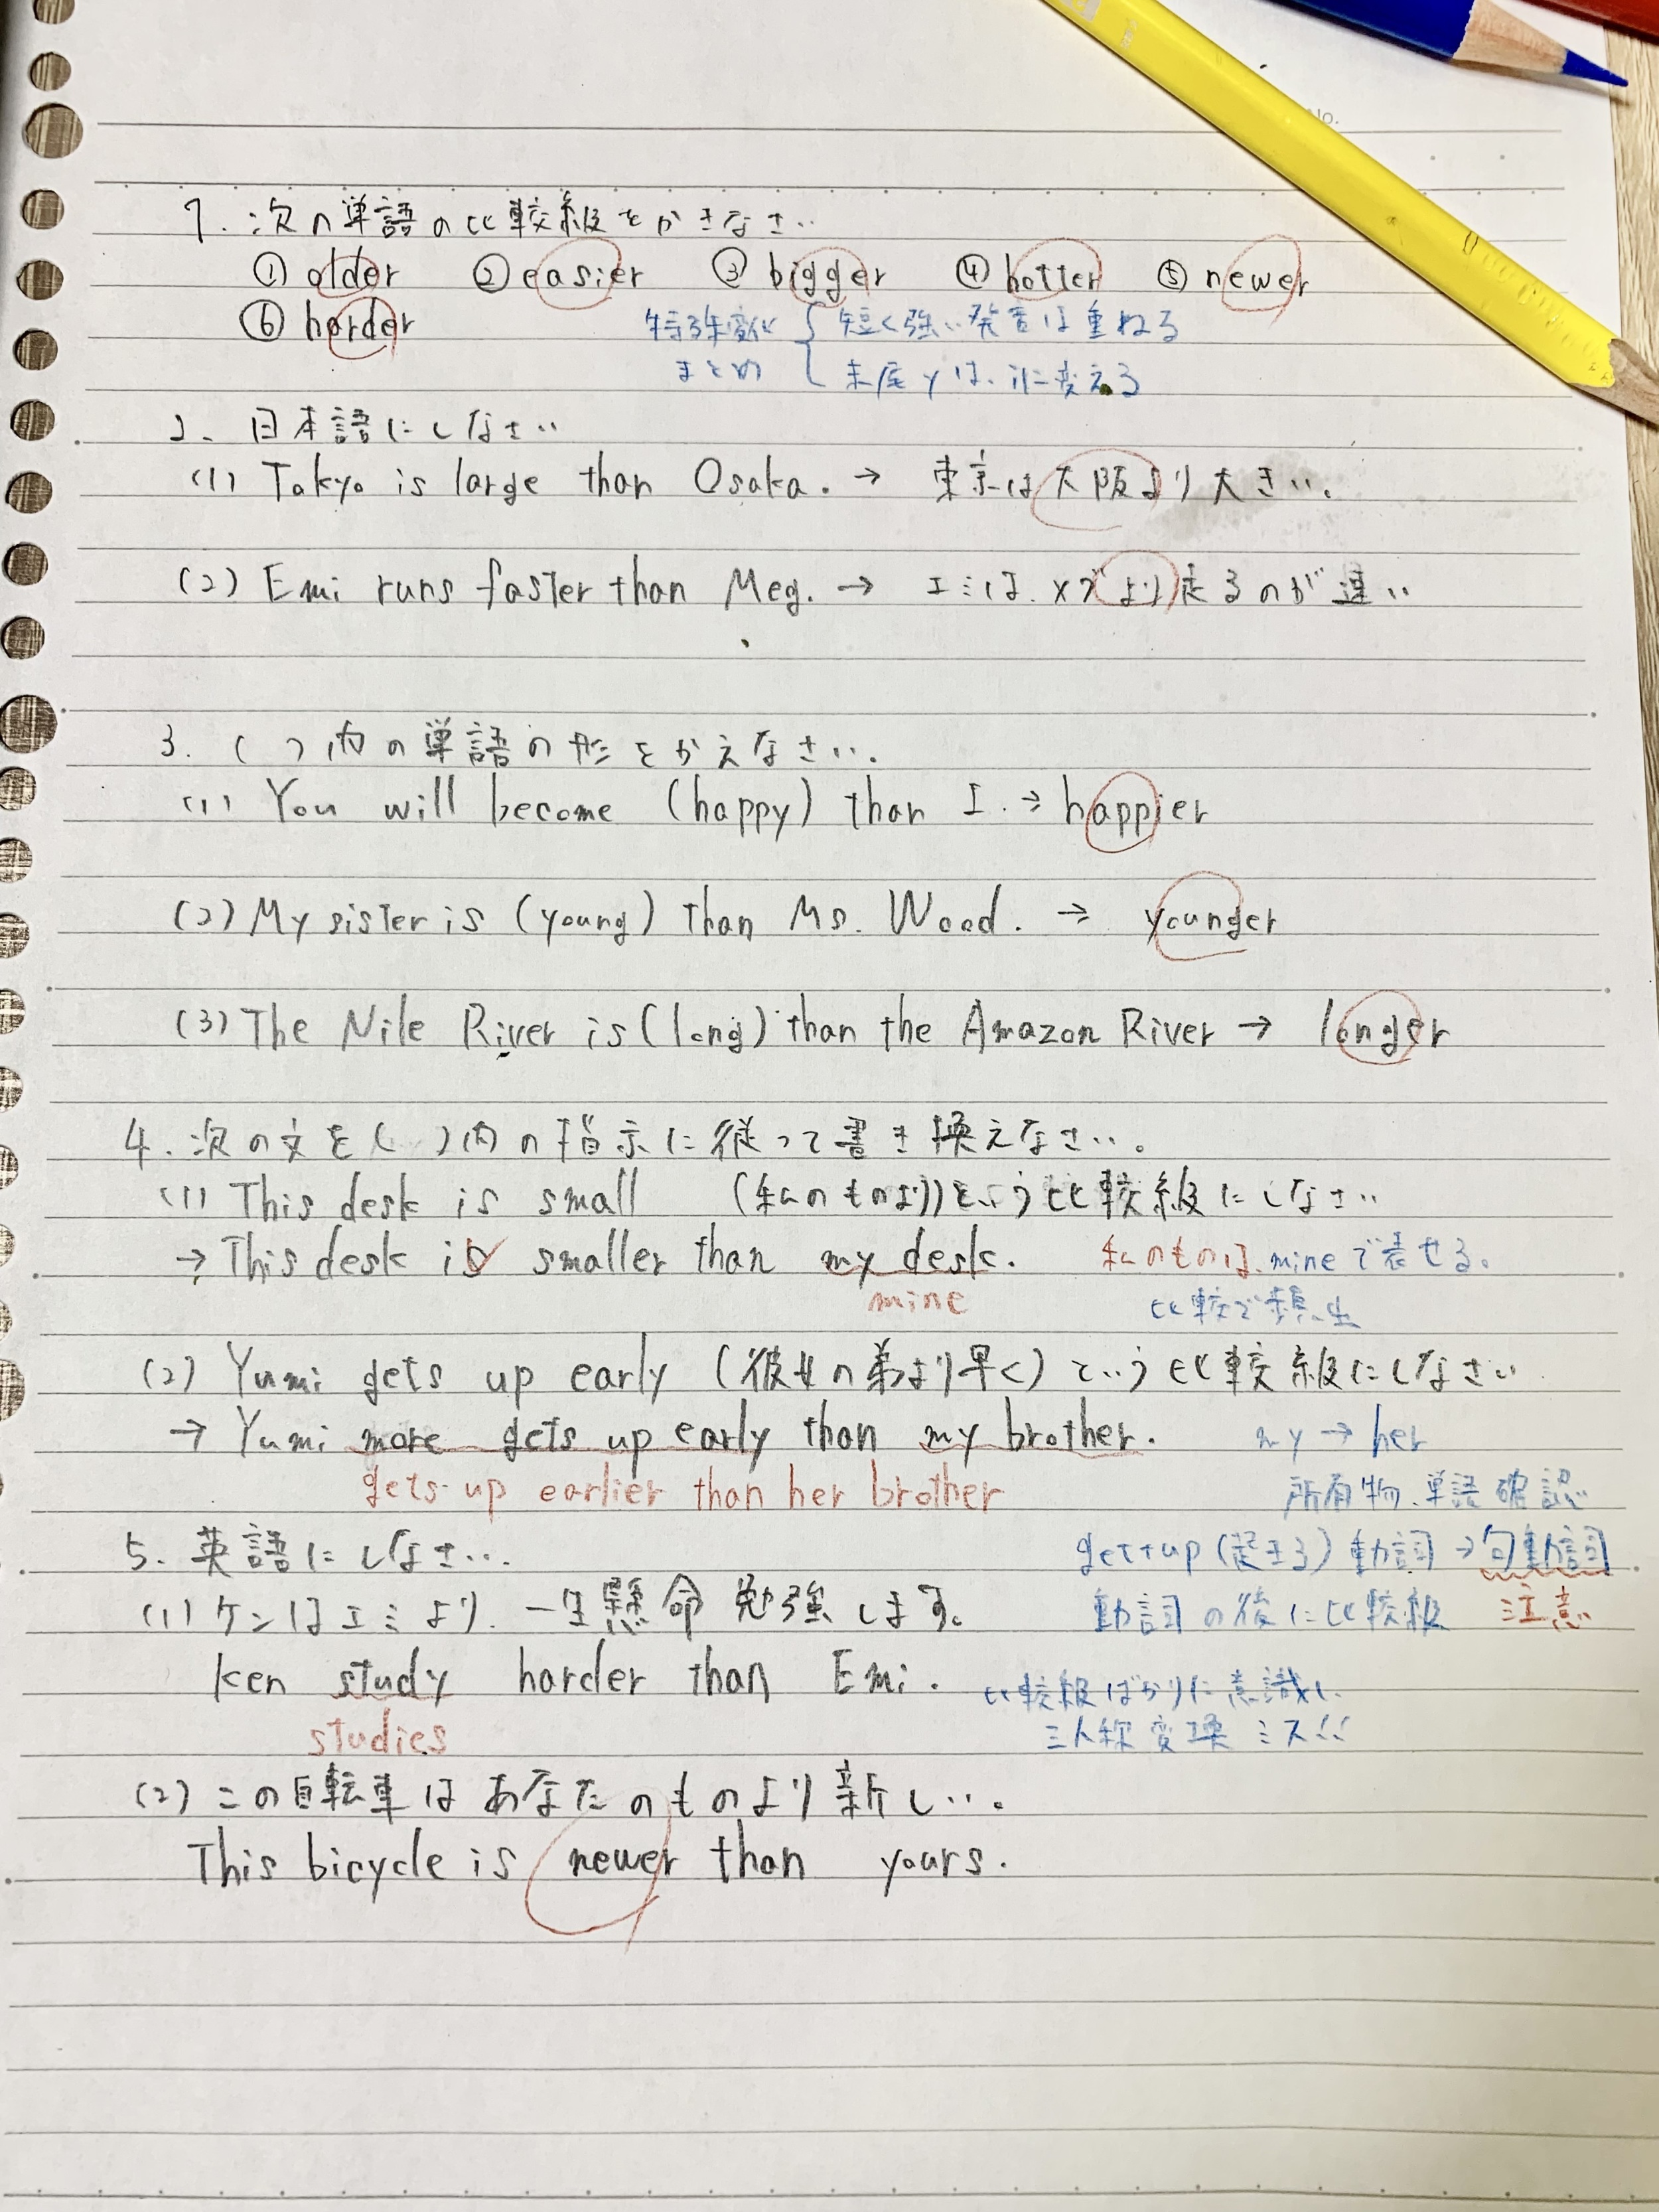 No.
1. 次の単語の比較級をかきなさい
① older ② easier ③ bigger ④ hotter ⑤ newer
⑥ harder 特殊変化 短く強い発音は重ねる
まとめ 末尾yは、iに変える
2、日本語にしなさい
(1) Tokyo is large than Osaka. → 東京は大阪より大きい。
(2) Emi runs faster than Meg. → エミは、メグより走るのが速い
3. ( )内の単語の形をかえなさい。
(1) You will become (happy) than I. → happier
(2) My sister is (young) than Ms. Wood. → younger
(3) The Nile River is (long) than the Amazon River → longer
4. 次の文を( )内の指示に従って書き換えなさい。
(1) This desk is small (私のものより)という比較級にしなさい
→ This desk is smaller than my desk. 私のものは、mineで表せる。
mine 比較で頻出
(2) Yumi gets up early (彼女の弟より早く) という比較級にしなさい
→ Yumi more gets up early than my brother. my → her
gets up earlier than her brother 所有物、単語確認
5. 英語にしなさい. get+up (起きる) 動詞 → 句動詞
(1) ケンはエミより、一生懸命勉強します。 動詞の後に比較級 注意
Ken study harder than Emi. 比較級ばかりに意識し、
studies 三人称変換ミス!!
(2) この自転車はあなたのものより新しい。
This bicycle is newer than yours.